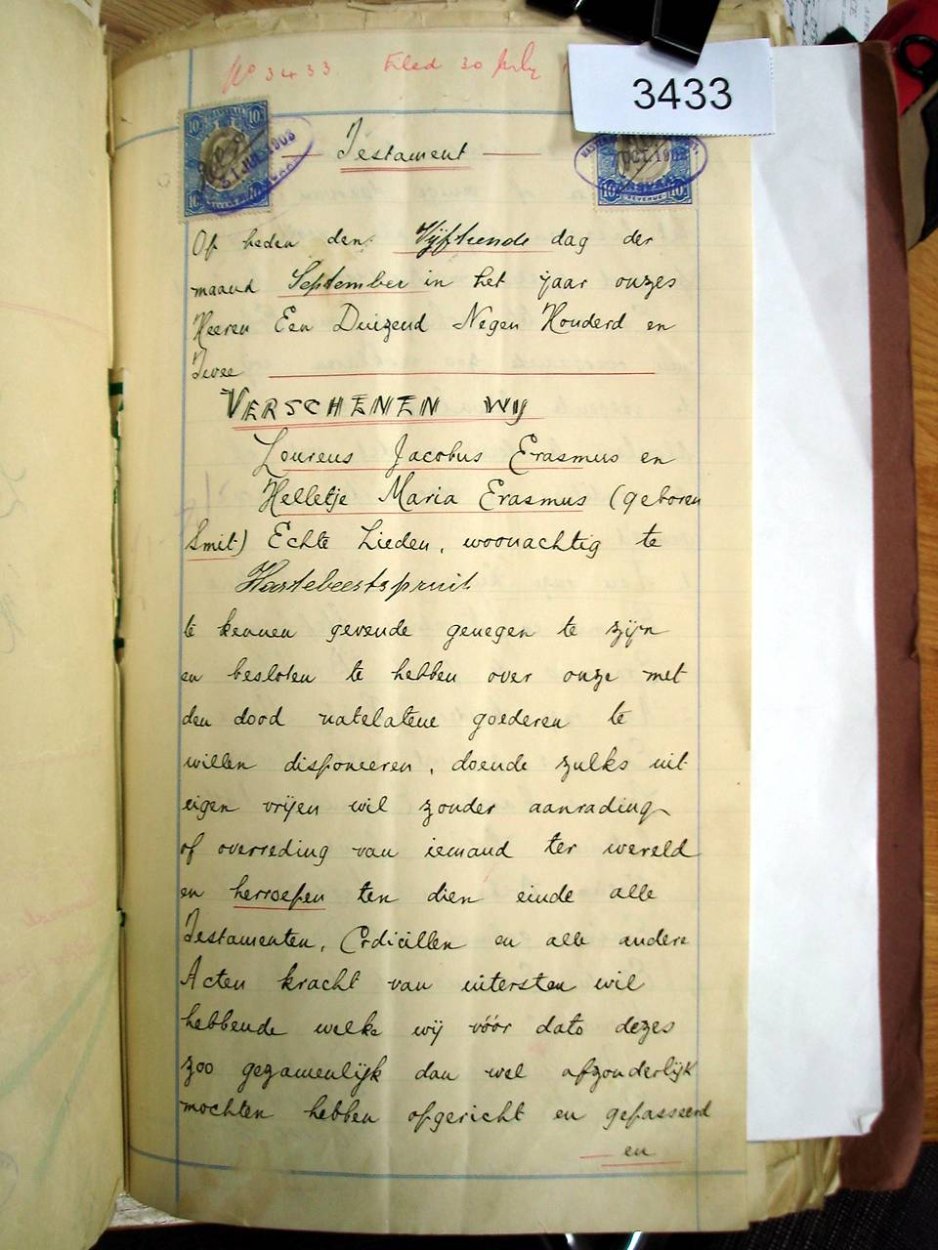 No 3433 Filed 30 July
3433
10 10
31 JUL 1903
OCT. 190
10 REVENUE 10
Testament
Op heden den Vijftiende dag der
maand September in het jaar onzes
Heeren Een Duizend Negen Honderd en
Twee
VERSCHENEN WIJ
Lourens Jacobus Erasmus en
Helletje Maria Erasmus (geboren
Smit) Echte Lieden, woonachtig te
Hartebeestspruit
te kennen gevende genegen te zijn
en besloten te hebben over onze met
den dood natelatene goederen te
willen disponeeren, doende zulks uit
eigen vrijen wil zonder aanrading
of overreding van iemand ter wereld
en herroepen ten dien einde alle
Testamenten, Codicillen en alle andere
Acten kracht van uitersten wil
hebbende welke wij vóór dato dezes
zoo gezamenlijk dan wel afzonderlijk
mochten hebben opgericht en gepasseerd
en